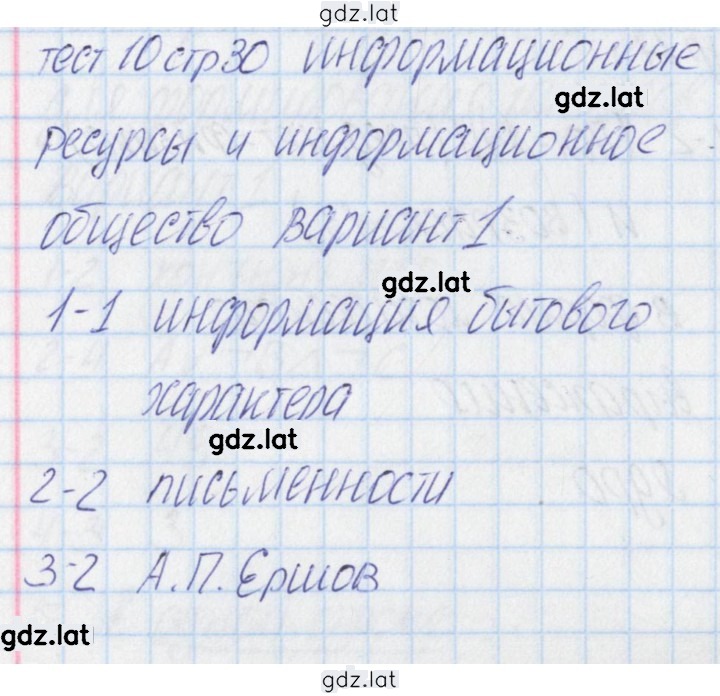 gdz.lat
тест 10 стр 30 информационные
gdz.lat
ресурсы и информационное
общество вариант 1.
gdz.lat
1-1 информация бытового
характера
gdz.lat
2-2 письменности
3-2 А.П. Ершов
gdz.lat
gdz.lat